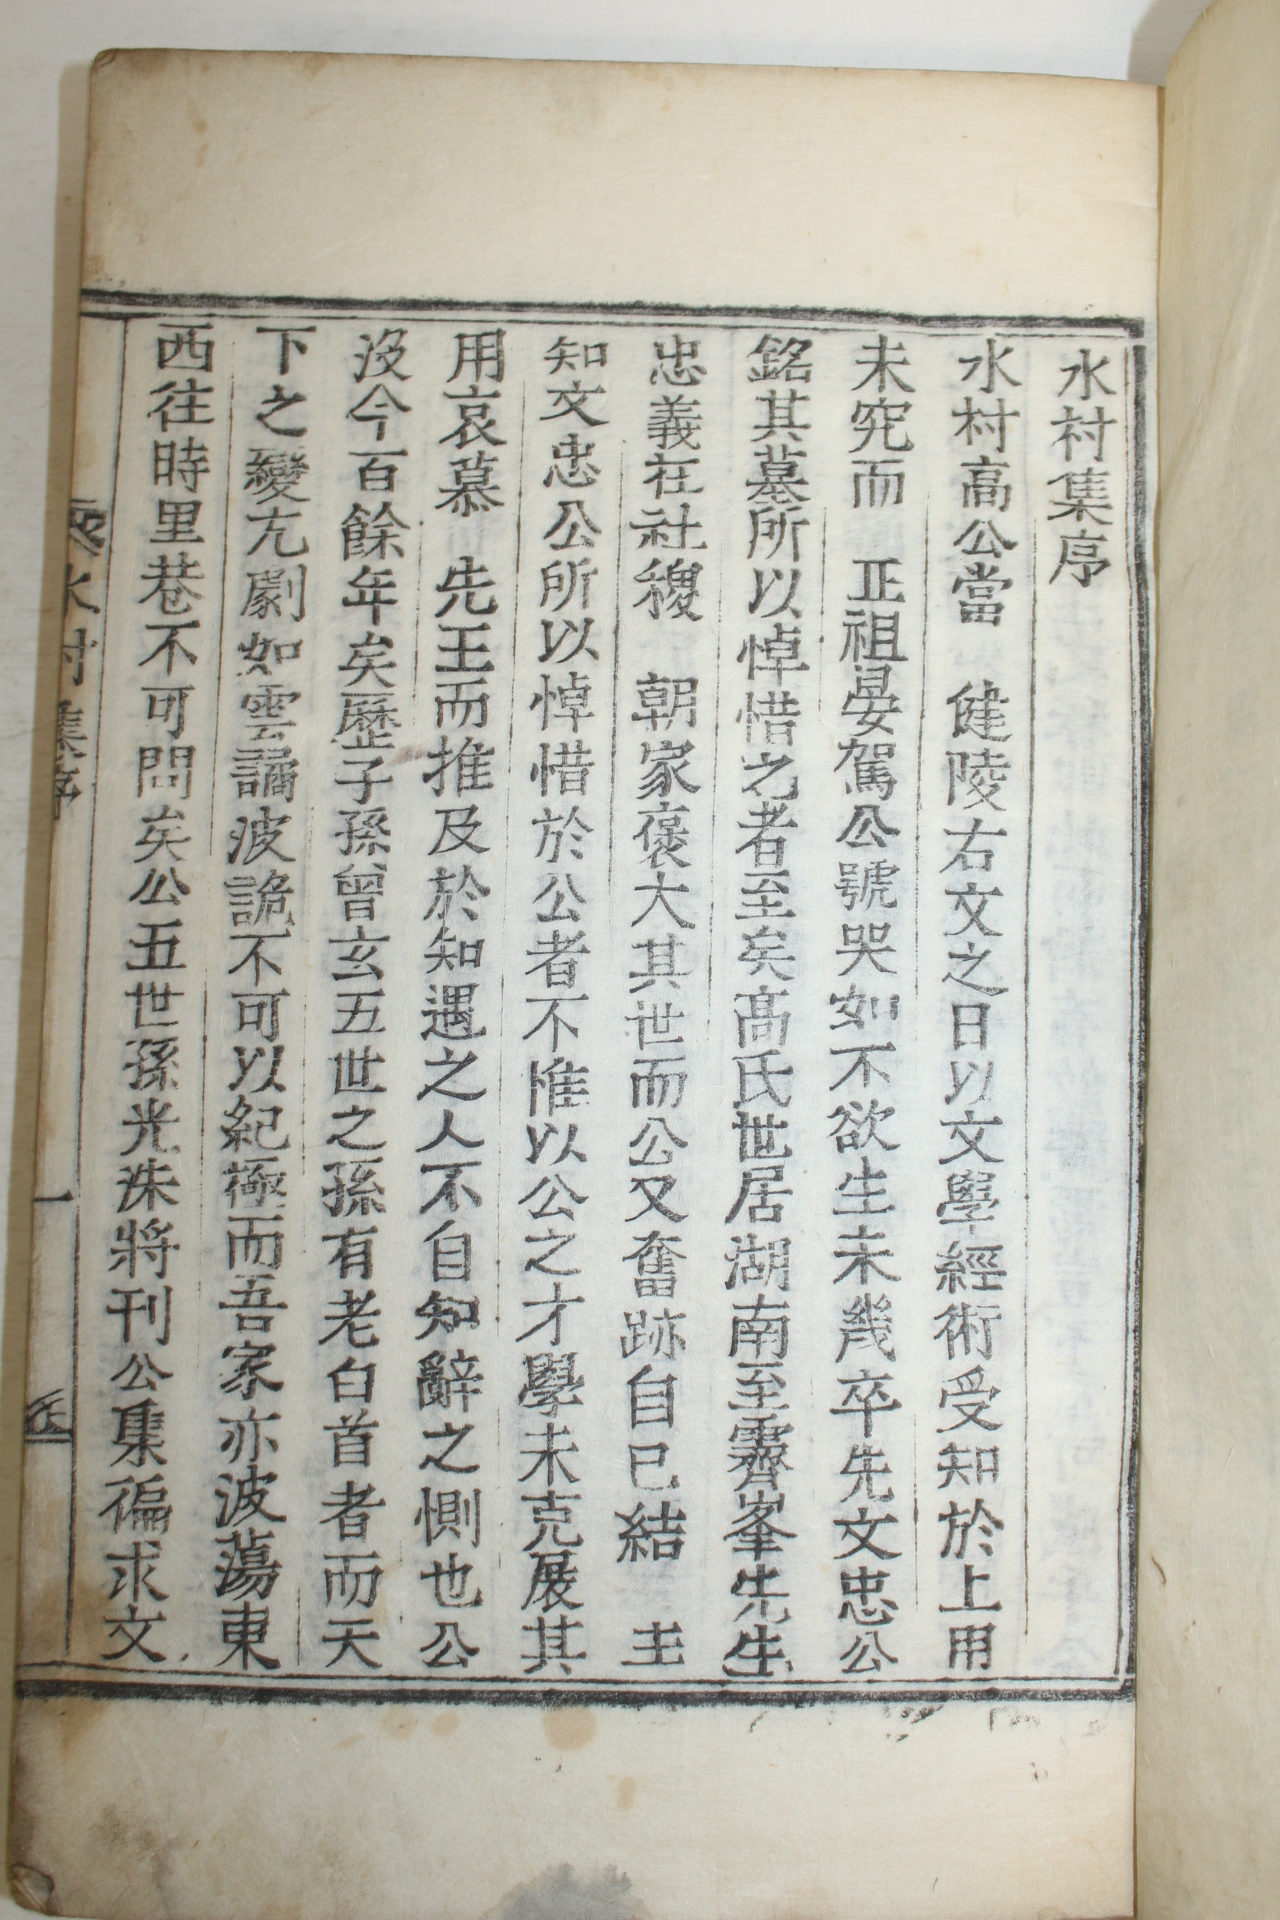 水村集序
水村高公當　健陵右文之日以文學經術受知於上用
未究而　正祖晏駕公號哭如不欲生未幾卒先文忠公
銘其墓所以悼惜之者至矣高氏世居湖南至霽峯先生
忠義在社稷　朝家褒大其世而公又奮跡自已結　主
知文忠公所以悼惜於公者不惟以公之才學未克展其
用哀慕　先王而推及於知遇之人不自知辭之惻也公
沒今百餘年矣歷子孫曾玄五世之孫有老白首者而天
下之變亢劇如雲譎波詭不可以紀極而吾家亦波蕩東
西往時里巷不可問矣公五世孫光洙將刊公集徧求文
水村集序
一